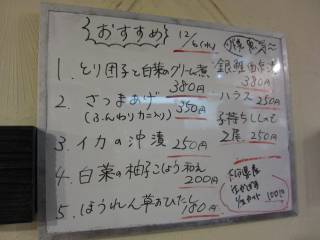 おすすめ 12/6(水)
1. とり団子と白菜のクリーム煮
380円
2. さつまあげ 350円
(ふんわりカニ入り)
3. イカの沖漬 250円
4. 白菜の柚子こしょう和え
200円
5. ほうれん草おひたし
180円
380円
ハラス 250円
子持ちししゃも
2尾 250円
100円